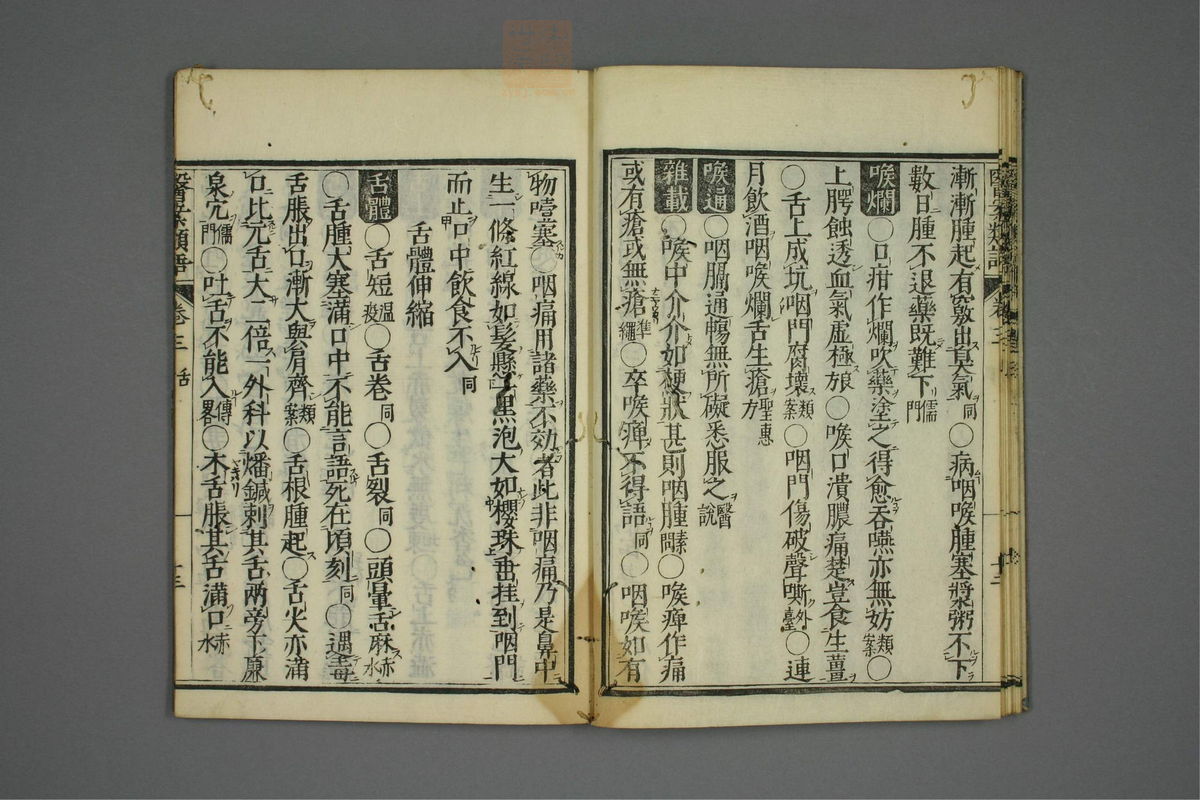 漸漸腫起有竅出臭氣同〇病咽喉腫塞漿粥不下
數日腫不退藥既難下儒門
喉爛〇口疳作爛吹藥塗之得愈吞嚥亦無妨類案〇
上腭蝕透血氣虛極〇喉口潰膿痛楚豈食生薑
〇舌上成坑咽門腐壞類案〇咽門傷破聲嘶外臺〇連
月飲酒咽喉爛舌生瘡聖惠方
喉通〇咽膈通暢無所礙悉服之醫說
雜載〇喉中介介如梗狀甚則咽腫素問〇喉痺作痛
或有瘡或無瘡準繩〇卒喉痺不得語同〇咽喉如有
物噎塞〇咽痛用諸藥不効者此非咽痛乃是鼻中
生一條紅線如髮懸黑泡大如櫻珠垂挂到咽門
而止口中飲食不入同
舌體伸縮
舌體〇舌短溫疫〇舌卷同〇舌裂同〇頭暈舌麻赤水
〇舌腫大塞滿口中不能言語死在頃刻同〇遇毒
舌脹出口漸大與肩齊類案〇舌根腫起〇舌火亦滿
口比元舌大二倍一外科以燔鍼刺其舌兩旁下廉
泉穴儒門〇吐舌不能入傳畧〇木舌脹其舌滿口赤水
醫案類語
卷三
舌
十三